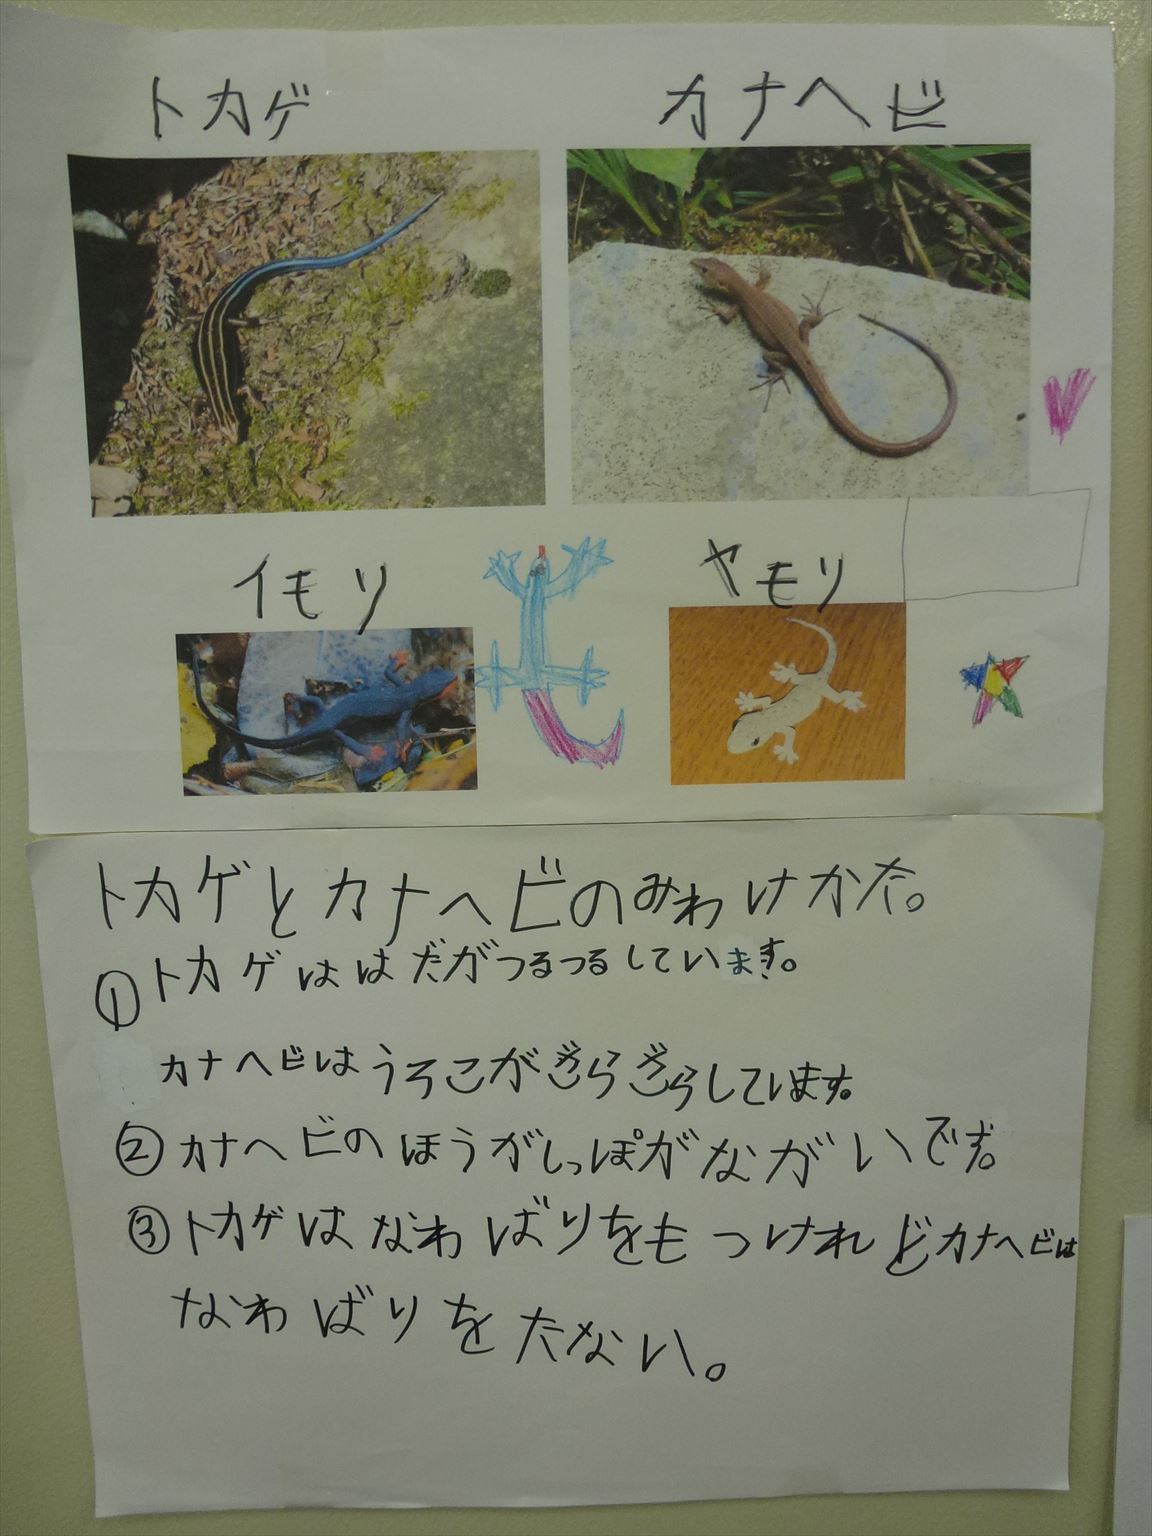 トカゲ
カナヘビ
イモリ
ヤモリ
トカゲとカナヘビのみわけかた。
①トカゲははだがつるつるしています。
カナヘビはうろこがぎらぎらしています。
②カナヘビのほうがしっぽがながいです。
③トカゲはなわばりをもつけれどカナヘビは
なわばりをたない。